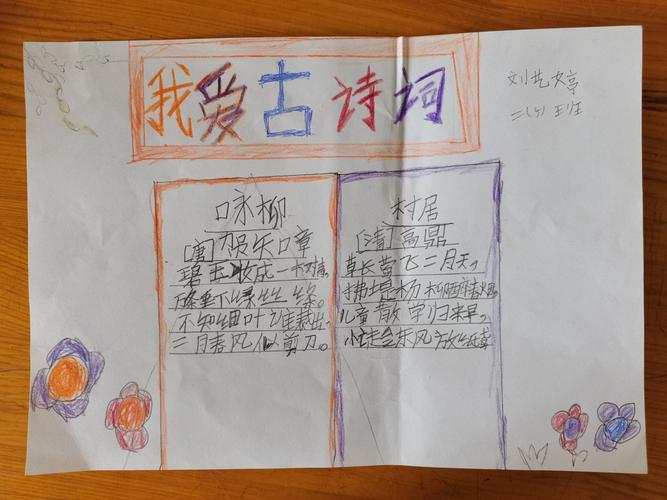 我爱古诗词
刘艺婷
二(5)班
咏柳
[唐]贺知章
碧玉妆成一树
万条垂下绿丝绦。
不知细叶谁裁出,
二月春风似剪刀。
村居
[清]高鼎
草长莺飞二月天,
拂堤杨柳醉春烟。
儿童散学归来早,
忙趁东风放纸鸢